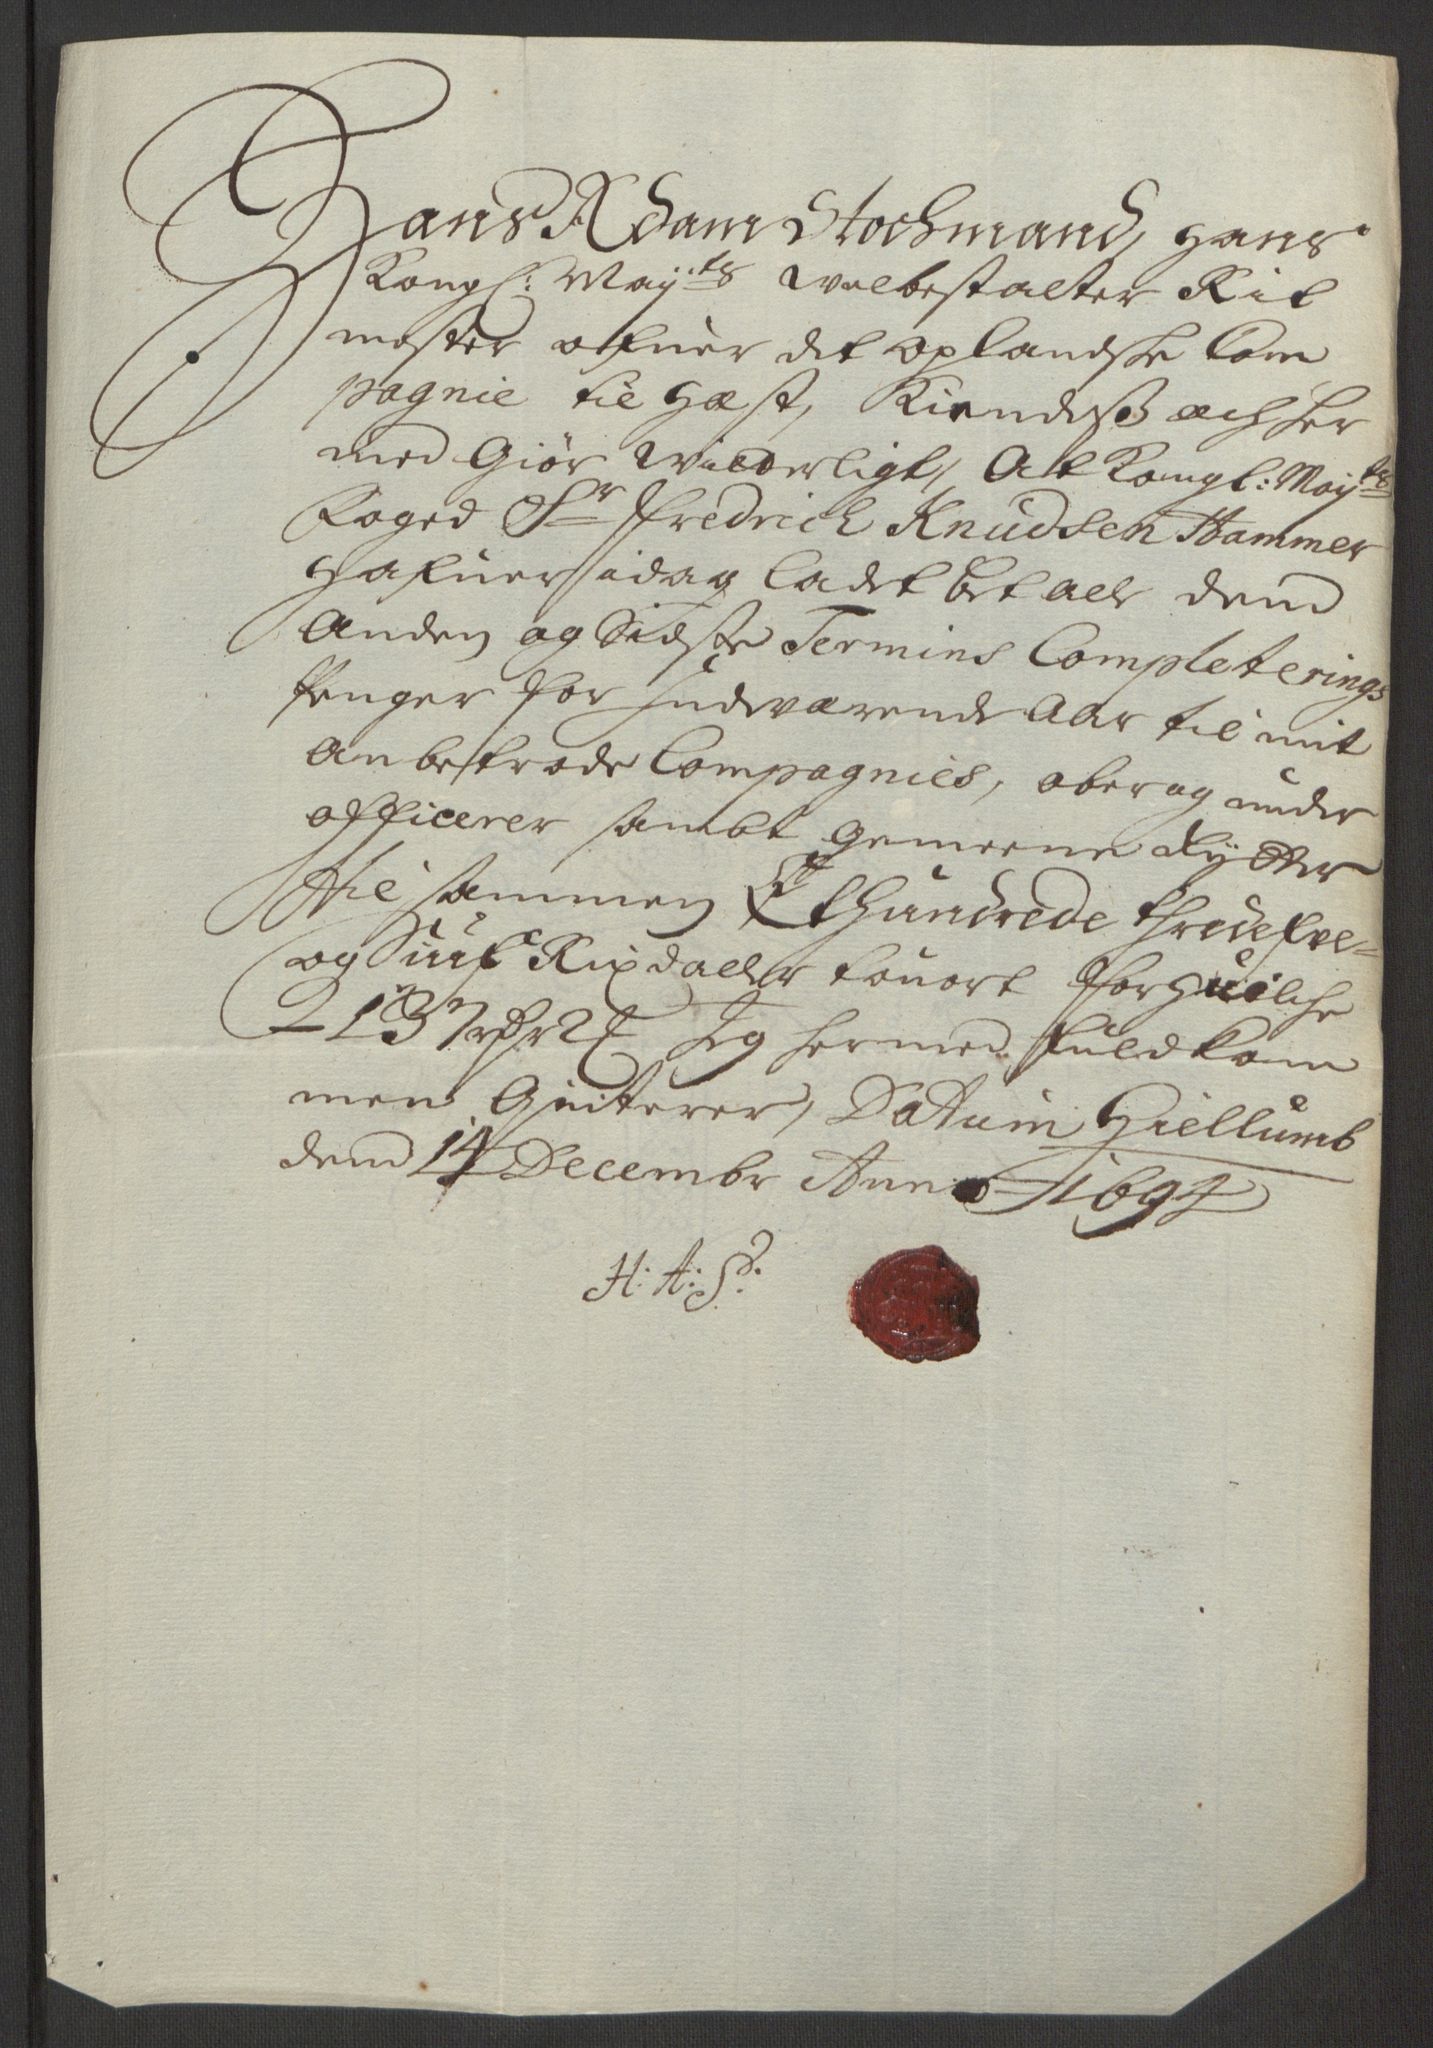 Hans Adam Stochmand, Hans
Kongl: May:ts welbestalter Rit
mester ofuer det oplandske Com
pagnie til Hæst, Kiendis och her
med Giør witterligt, At Kongl: May:ts
Foged Sr Fredrich Knudsen Hammer
Hafuer idag ladet betale dend
Anden og Sidste Termins Completerings
Penger for indeværende Aar til mit
Anbetrode Compagnies, ober og under
officerer sambt gemeene Rytter
til sammen Et Hundrede
og Siuf Rixdaler forHuilche
137 Jeg hermed fuldkom
men Qviterer, Datum Hiellumb
dend 14 Decembr Anno 1694
H: A: S: